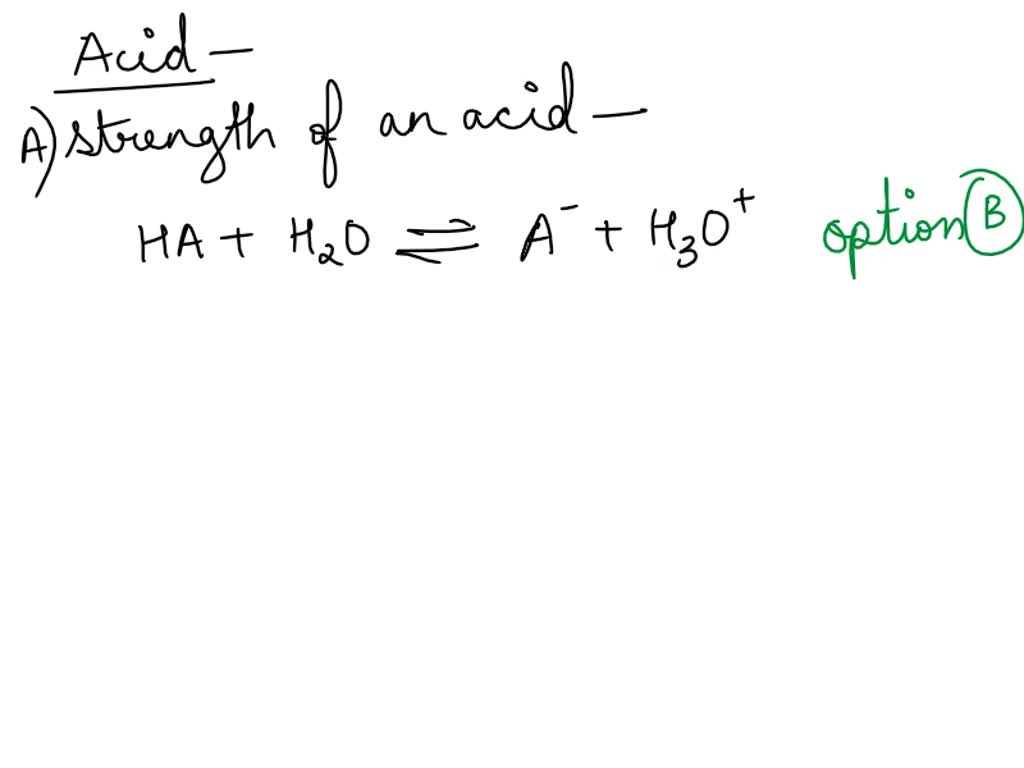 Acid —
A) strength of an acid —
HA + H₂O ⇌ A⁻ + H₃O⁺ option B